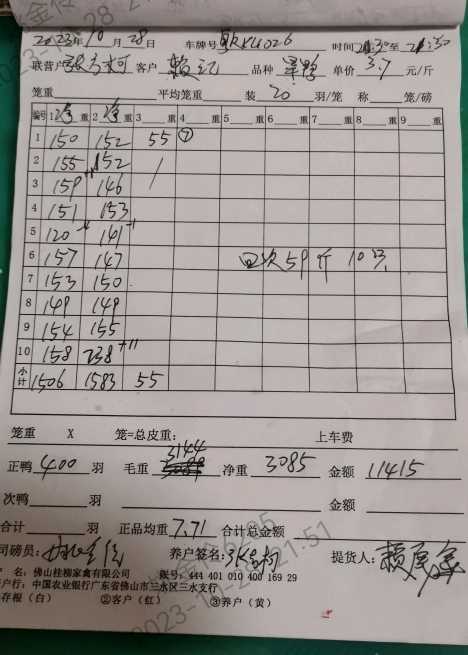 2023年10月28日 车牌号 时间 至
联营户 客户 赖记 品种 单价 3.7 元/斤
笼重 平均笼重 装 20 羽/笼 称 笼/磅
编号 1 净 重 2 净 重 3 重 4 重 5 重 6 重 7 重 8 重 9 重
1 150 152 55 ⑦
2 155 152 /
3 159 146
4 151 153
5 120 141
6 157 147 59斤 10只
7 153 150
8 149 149
9 154 155
10 158 238 +11
小计 1506 1583 55
笼重 X 笼=总皮重: 上车费
3144
正鸭 400 羽 毛重 净重 3085 金额 11415
次鸭 羽 金额
合计 羽 正品均重 7.71 合计总金额
司磅员: 养户签名: 提货人:
名: 佛山桂柳家禽有限公司 账号: 444 401 010 400 169 29
户行: 中国农业银行广东省佛山市三水区三水支行
存根(白) ②客户(红) ③养户(黄)
2023-10-28 21:51